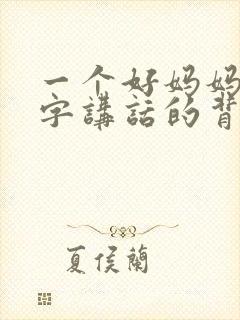 一个好妈妈
字講話的背
夏侯蘭